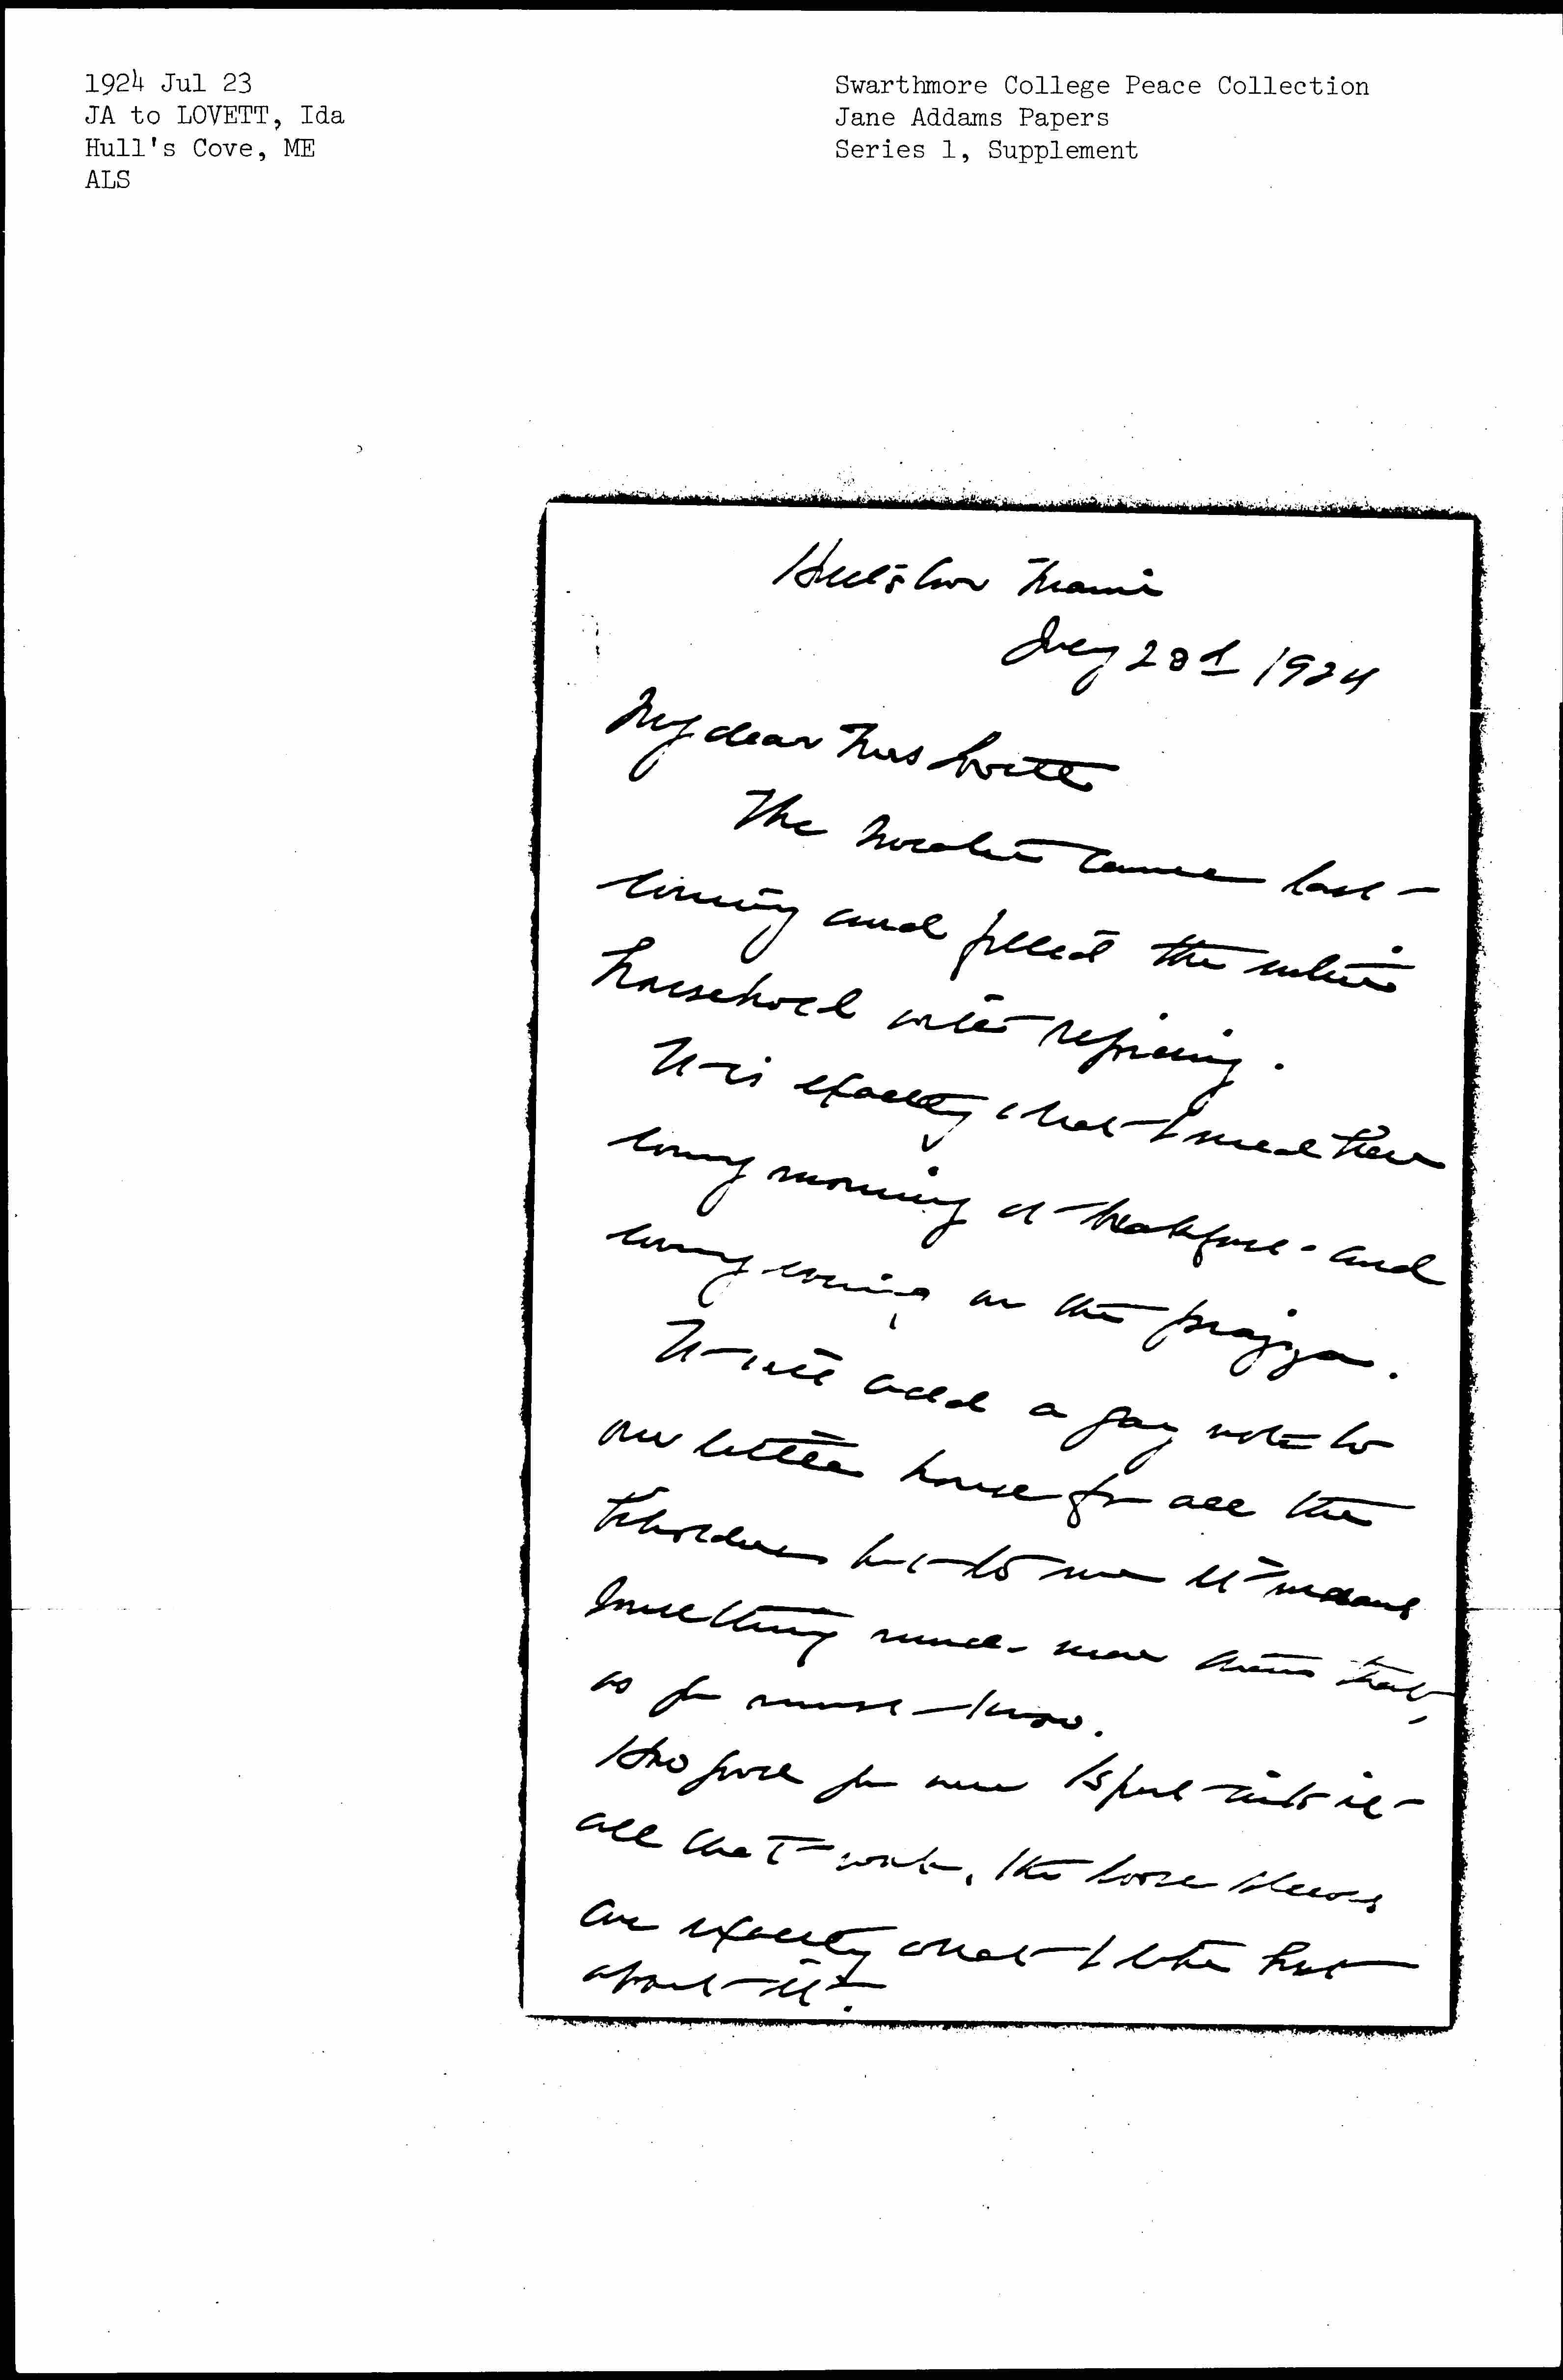 1924 Jul 23
JA to LOVETT, Ida
Hull's Cove, ME
ALS
Swarthmore College Peace Collection
Jane Addams Papers
Series 1, Supplement
Hull's Cove Maine
July 23d 1924
My dear Mrs Lovett
The came last
evening and filled the entire
household with rejoicing.
It is exactly what I need here
every morning at breakfast and
every evening on the piazza.
It will add a gay note to
our little house for all the
beholders but to me it means
something much more than that,
as you must know.
How good of you to put into it
all that work, the loose sleeves
are exactly what I like best
about it.